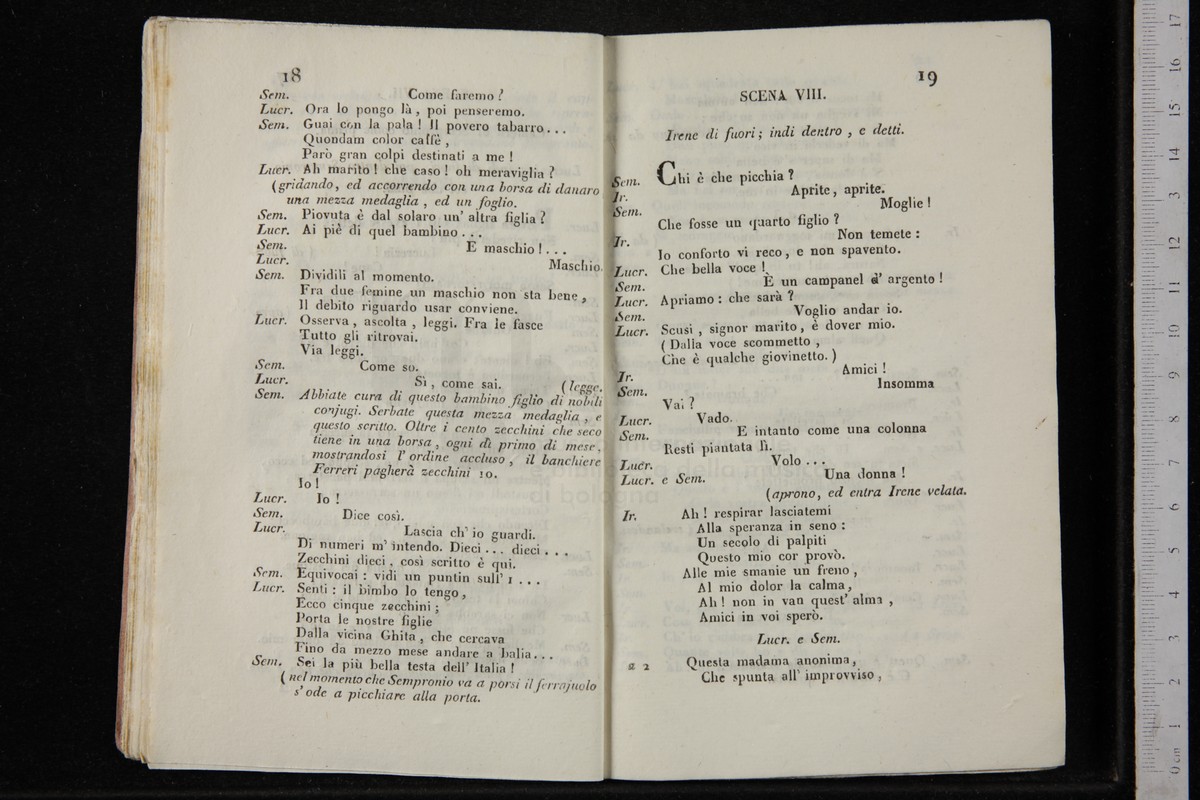 18
Sem. Come faremo?
Lucr. Ora lo pongo là, poi penseremo.
Sem. Guai con la pala! Il povero tabarro...
Quondam color caffè,
Parò gran colpi destinati a me!
Lucr. Ah marito! che caso! oh meraviglia?
(gridando, ed accorrendo con una borsa di danaro
una mezza medaglia, ed un foglio.
Sem. Piovuta è dal solaro un' altra figlia?
Lucr. Ai piè di quel bambino...
Sem. E maschio!...
Lucr. Maschio.
Sem. Dividili al momento.
Fra due femine un maschio non sta bene,
Il debito riguardo usar conviene.
Lucr. Osserva, ascolta, leggi. Fra le fasce
Tutto gli ritrovai.
Via leggi.
Sem. Come so.
Lucr. Sì, come sai. (legge.
Sem. Abbiate cura di questo bambino figlio di nobili
conjugi. Serbate questa mezza medaglia, e
questo scritto. Oltre i cento zecchini che seco
tiene in una borsa, ogni dì primo di mese,
mostrandosi l' ordine accluso, il banchiere
Ferreri pagherà zecchini 10.
Io!
Lucr. Io!
Sem. Dice così.
Lucr. Lascia ch' io guardi.
Di numeri m' intendo. Dieci... dieci...
Zecchini dieci, così scritto è qui.
Sem. Equivocai: vidi un puntin sull' 1...
Lucr. Senti: il bimbo lo tengo,
Ecco cinque zecchini;
Porta le nostre figlie
Dalla vicina Ghita, che cercava
Fino da mezzo mese andare a balia...
Sem. Sei la più bella testa dell' Italia!
(nel momento che Sempronio va a porsi il ferrajuolo
s' ode a picchiare alla porta.
19
SCENA VIII.
Irene di fuori; indi dentro, e detti.
Sem. Chi è che picchia?
Ir. Aprite, aprite.
Sem. Moglie!
Che fosse un quarto figlio?
Ir. Non temete:
Io conforto vi reco, e non spavento.
Lucr. Che bella voce!
Sem. È un campanel d' argento!
Lucr. Apriamo: che sarà?
Sem. Voglio andar io.
Lucr. Scusi, signor marito, è dover mio.
(Dalla voce scommetto,
Che è qualche giovinetto.)
Ir. Amici!
Sem. Insomma
Vai?
Lucr. Vado.
Sem. E intanto come una colonna
Resti piantata lì.
Lucr. Volo...
Lucr. e Sem. Una donna!
(aprono, ed entra Irene velata.
Ir. Ah! respirar lasciatemi
Alla speranza in seno:
Un secolo di palpiti
Questo mio cor provò.
Alle mie smanie un freno,
Al mio dolor la calma,
Ah! non in van quest' alma,
Amici in voi sperò.
Lucr. e Sem.
a 2 Questa madama anonima,
Che spunta all' improvviso,